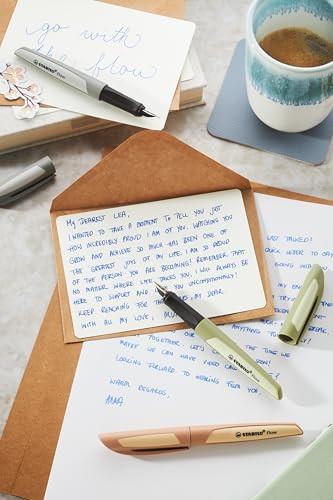 go with
the flow
STABILO Flow
MY DEAREST LEA,
I WANTED TO TAKE A MOMENT TO TELL YOU JUST
HOW INCREDIBLY PROUD I AM OF YOU. WATCHING YOU
GROW AND ACHIEVE SO MUCH HAS BEEN ONE OF
THE GREATEST JOYS OF MY LIFE. I AM SO PROUD
OF THE PERSON YOU ARE BECOMING! REMEMBER THAT
NO MATTER WHERE LIFE TAKES YOU, I WILL ALWAYS BE
HERE TO SUPPORT AND YOU UNCONDITIONALLY!
KEEP REACHING FOR THE, MY DEAR
WITH ALL MY LOVE,
LAST TALKED!
QUICK LETTER TO SAY
BEING
MY
TRY
ANYTHING
TOGETHER. LET'S THE TIME WE
MAYBE WE CAN HAVE VIDEO CALL SOON!
LOOKING FORWARD TO HEARING FROM YOU,
WARM REGARDS,
ANNA
STABILO Flow
STABILO Flow